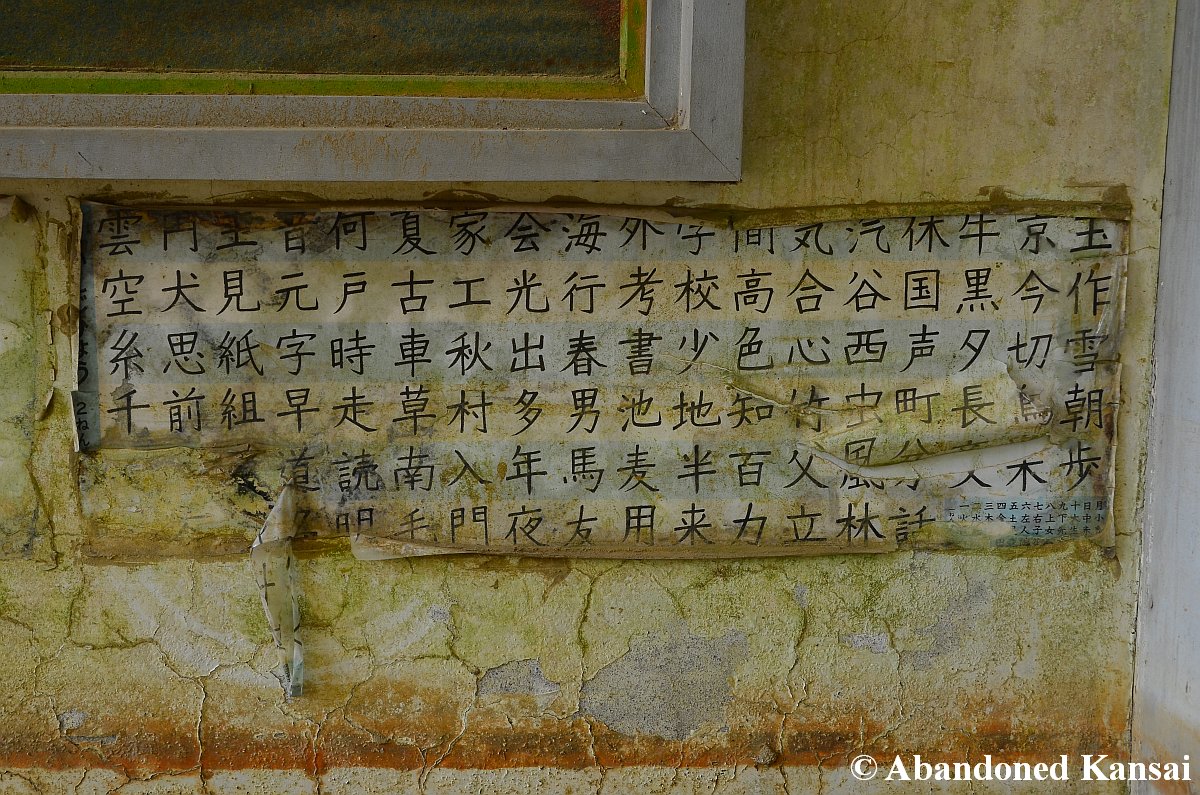 雲円王音何夏家会海外学間気汽休牛京玉
空犬見元戸古工光行考校高合谷国黒今作
糸思紙字時車秋出春書少色心西声夕切雪
千前組早走草村多男池地知竹虫町長鳥朝
道読南入年馬麦半百父風分木歩
明毛門夜友用来力立林話
一二三四五六七八九十日月
火水木金土左右上下大中小
人子女
© Abandoned Kansai